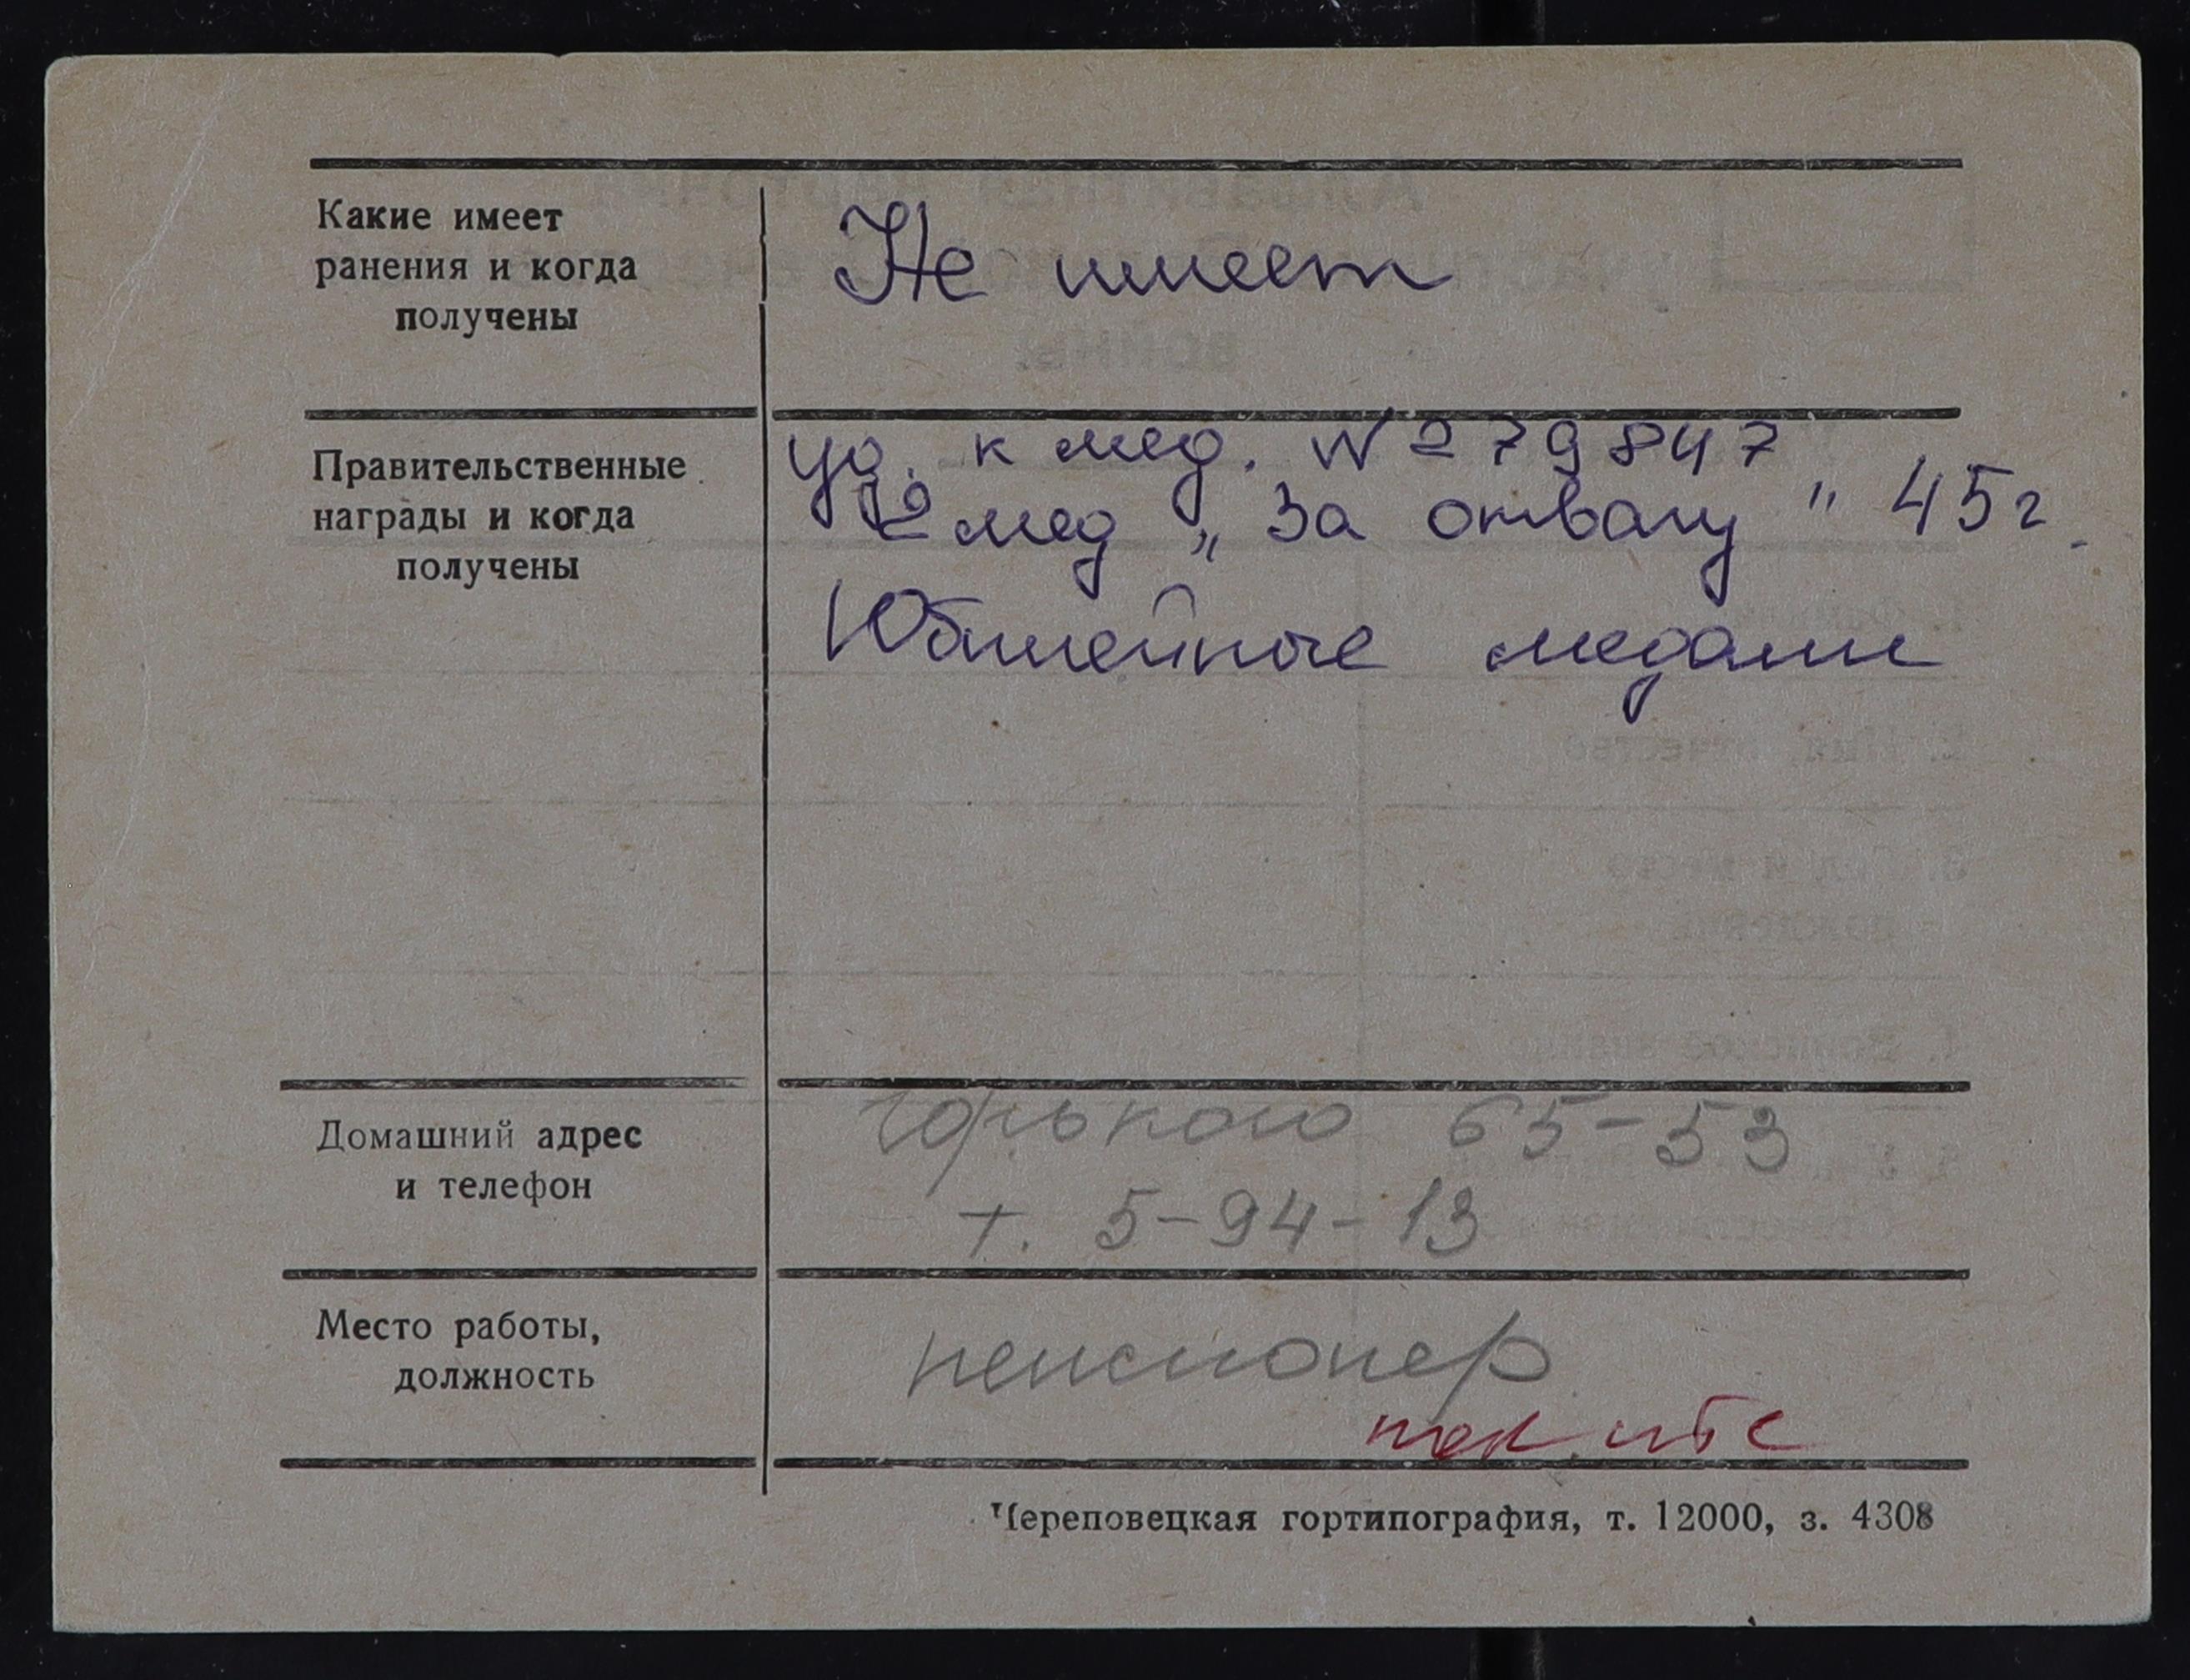 Какие имеет
ранения и когда
получены
Не имеет
Правительственные
награды и когда
получены
уд. к мед. № 279847
2 мед „За отвагу" 45г.
Юбилейные медали
Домашний адрес
и телефон
Горького 65-53
т. 5-94-13
Место работы,
должность
пенсионер
Череповецкая гортипография, т. 12000, з. 4308